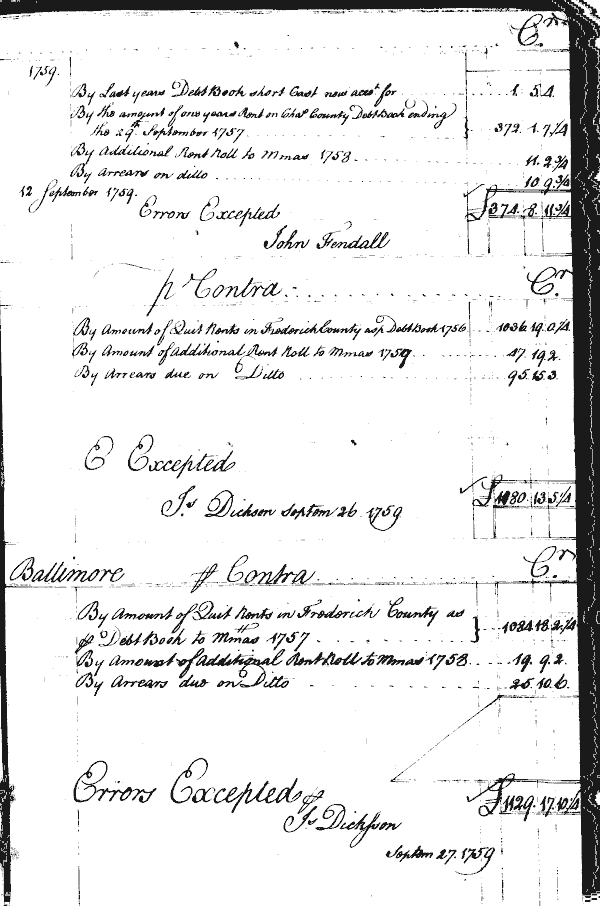 Cr
1759.
By Last years Debt Book short Cast new acct for 1. 5.4
By the amount of one years Rent on Chas County Debt Book ending
the 29th September 1757 372. 1. 7¼
By Additional Rent Roll to Mmas 1758 11. 2¾
By Arrears on ditto 10 9¾
12 September 1759.
Errors Excepted £374. 8. 11¾
John Fendall
p Contra Cr
By Amount of Quit Rents in Frederick County as p Debt Book 1756 1036. 19. 0¼
By Amount of Additional Rent Roll to Mmas 1759 47. 19 2
By Arrears due on Ditto 95. 15. 3
E Excepted
Js Dickson Septem 26. 1759 £1180. 13. 5¼
Baltimore p Contra Cr
By Amount of Quit Rents in Frederick County as
p Debt Book to Mmas 1757 1084 18. 2¼
By Amount of Additional Rent Roll to Mmas 1758 19. 9. 2
By Arrears due on Ditto 25. 10. 6
Errors Excepted p £1129. 17. 10¼
Js Dickson
Septem 27. 1759